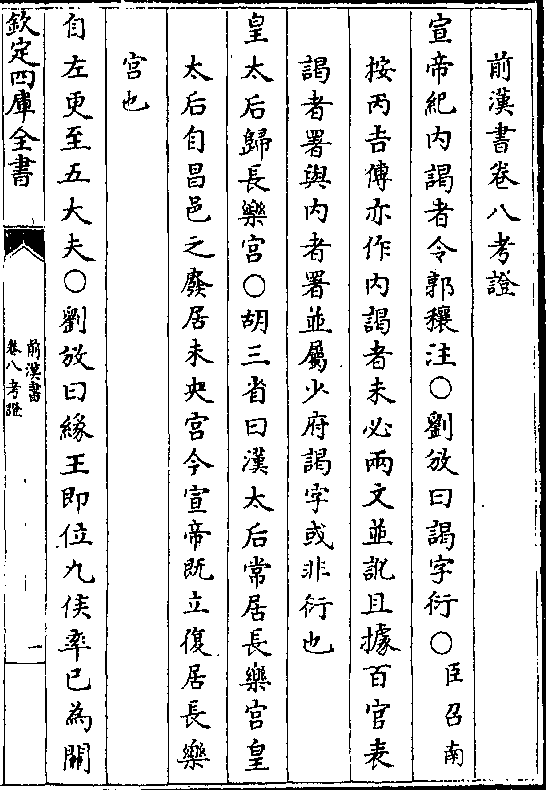 前漢書卷八考證
宣帝紀內謁者令郭穰注○劉攽曰謁字衍○臣召南
按丙吉傳亦作內謁者未必兩文並訛且據百官表
謁者署與內者署並屬少府謁字或非衍也
皇太后歸長樂宮○胡三省曰漢太后常居長樂宮皇
太后自昌邑之廢居未央宮今宣帝既立復居長樂
宮也
自左更至五大夫○劉攽曰緣王即位九侯率已為關
欽定四庫全書
前漢書
卷八考證
一